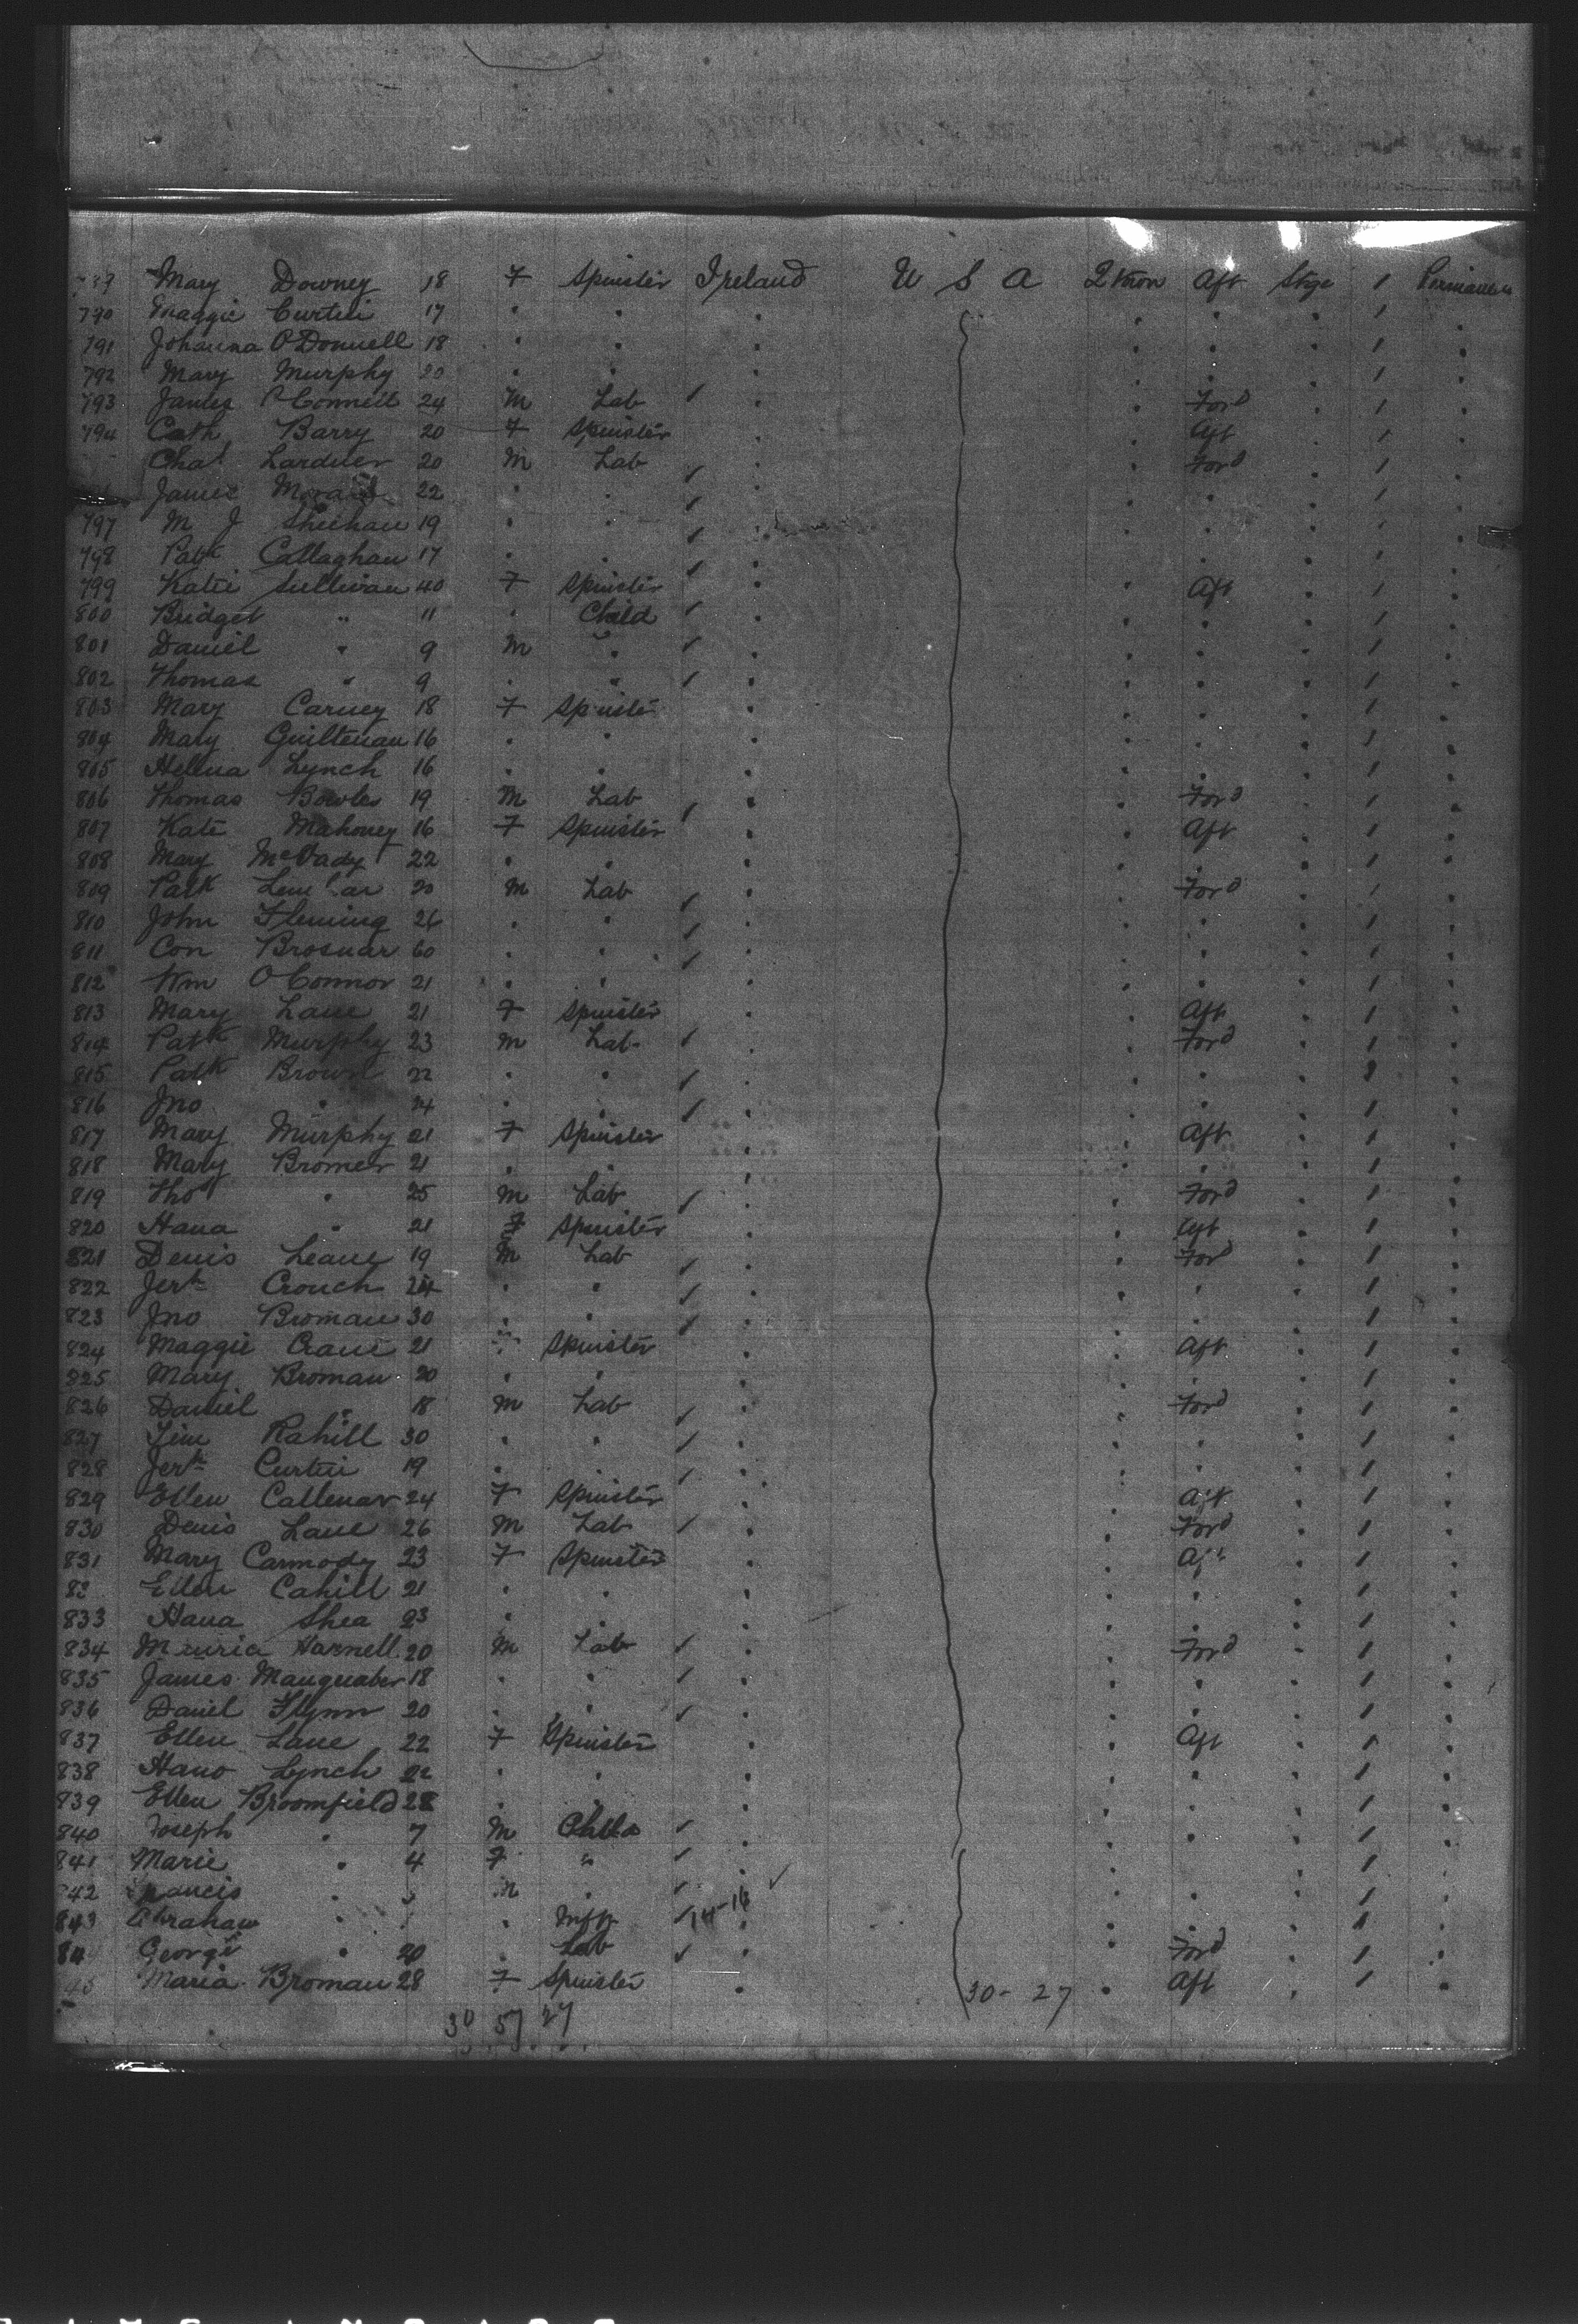 Mary Downey 18 F Spinster Ireland U S A 2 Kron Aft Stge 1
790 Maggie Curtin 17 " " " " " " 1 "
791 Johanna O'Donnell 18 " " " " " " 1 "
792 Mary Murphy 20 " " " " " " 1 "
793 James O'Connell 24 M Lab / " " Ford " 1 "
794 Cath Barry 20 F Spinster " " Aft " 1 "
Chas Lardner 20 M Lab / " " Ford " 1 "
James 22 " " / " " " " 1 "
797 M J Sheehan 19 " " / " " " " 1 "
798 Patk Callaghan 17 " " / " " " " 1 "
799 Katie Sullivan 40 F Spinster " " Aft " 1 "
800 Bridget " 11 " Child / " " " " 1 "
801 Daniel " 9 M " / " " " " 1 "
802 Thomas " 9 " " / " " " " 1 "
803 Mary Carney 18 F Spinster " " " " 1 "
804 Mary Guiltenan 16 " " " " " " 1 "
805 Hellena Lynch 16 " " " " " " 1 "
806 Thomas Bowler 19 M Lab / " " Ford " 1 "
807 Kate Mahoney 16 F Spinster " " Aft " 1 "
808 Mary 22 " " " " " " 1 "
809 Patk 20 M Lab / " " Ford " 1 "
810 John Fleming 26 " " / " " " " 1 "
811 Con Brosnar 60 " " / " " " " 1 "
812 Wm O'Connor 21 " " " " " " 1 "
813 Mary Lane 21 F Spinster " " Aft " 1 "
814 Patk Murphy 23 M Lab / " " Ford " 1 "
815 Patk Brown 22 " " / " " " " 1 "
816 Jno " 14 " " / " " " " 1 "
817 Mary Murphy 21 F Spinster " " Aft " 1 "
818 Mary Bromer 21 " " " " " " 1 "
819 Thos " 25 M Lab / " " Ford " 1 "
820 Hana " 21 F Spinster " " Aft " 1 "
821 Denis Leane 19 M Lab / " " Ford " 1 "
822 Jerh Crouch 24 " " / " " " " 1 "
823 Jno Broman 30 " " / " " " " 1 "
824 Maggie Crane 21 " Spinster " " Aft " 1 "
825 Mary Broman 20 " " " " " " 1 "
826 Daniel " 18 M Lab / " " Ford " 1 "
827 Tim Rahill 30 " " / " " " " 1 "
828 Jerh Curtin 19 " " / " " " " 1 "
829 Ellen Callenar 24 F Spinster " " Aft " 1 "
830 Denis Lane 26 M Lab / " " Ford " 1 "
831 Mary Carmody 23 F Spinster " " Aft " 1 "
Ellen Cahill 21 " " " " " " 1 "
833 Hana Shea 23 " " " " " " 1 "
834 Harnell 20 M Lab / " " Ford " 1 "
835 James 18 " " / " " " " 1 "
836 Daniel Flynn 20 " " / " " " " 1 "
837 Ellen Lane 22 F Spinster " " Aft " 1 "
838 Hano Lynch 22 " " " " " " 1 "
839 Ellen Broomfield 28 " " " " " " 1 "
840 Joseph " 7 M Child / " " " " 1 "
841 Marie " 4 F " / " " " " 1 "
842 Francis " M " / " " " " 1 "
843 Abraham " " Inft / 14-16 " " " " 1 "
George " 20 " Lab / " " Ford " 1 "
Maria Broman 28 F Spinster " 30 - 27 " Aft " 1 "
30 57 27